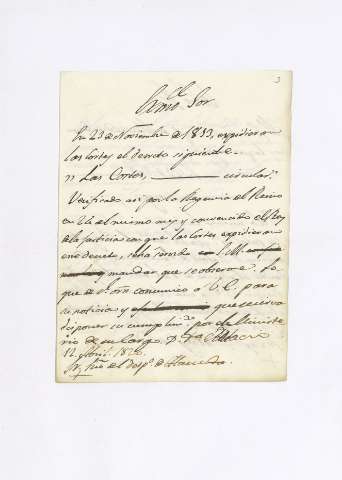 3
Exmo Sor
En 23 de Noviembre de 1813, expidieron
las Cortes el decreto siguiente
" Las Cortes, circular."
Verificado asi por la Regencia del Reino
en 26 del mismo mes y convencido el Rey
de la justicia con que las Cortes expidieron
ese decreto, ha tenido S.M.
mandar que se observe. Lo
que de Rl orn comunico a V.E. para
su noticia y que se sirva
disponer su cumplimto por el Ministe
rio de su cargo. Ds
12 Abril 1820.
Sr. Srio del Despo de Hacienda.